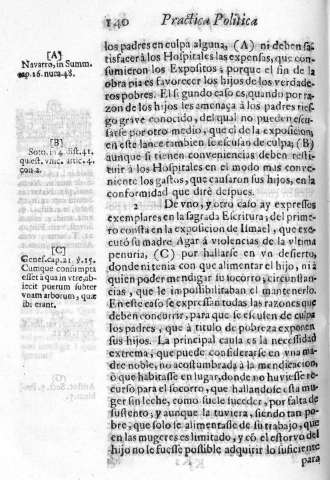 140 Practica Politica
los padres en culpa alguna, (A) ni deben sa-
tisfacer à los Hospitales las expensas, que con-
sumieron los Expositos; porque el fin de la
obra pia es favorecer los hijos de los verdade-
ros pobres. El segundo caso es, quando por ra-
zon de los hijos les amenaça à los padres ries-
go grave conocido, del qual no pueden escu-
sarse por otro medio, que el de la exposicion,
en este lance tambien se escusan de culpa; (B)
aunque si tienen conveniencias deben resti-
tuir à los Hospitales en el modo mas conve-
niente los gastos, que causaron sus hijos, en la
conformidad que dirè despues.
2 De vno, y otro caso ay expressos
exemplares en la sagrada Escritura, del prime-
ro consta en la exposicion de Ismael, que exe-
cutò su madre Agar à violencias de la vltima
penuria, (C) por hallarse en vn desierto,
donde ni tenia con que alimentar el hijo, ni à
quien poder mendigar su socorro, circunstan-
cias, que le impossibilitaban el mantenerlo.
En este caso se expressan todas las razones que
deben concurrir, para que se escusen de culpa
los padres, que à titulo de pobreza exponen
sus hijos. La principal causa es la necessidad
extrema, que puede considerarse en vna ma-
dre noble, no acostumbrada à la mendicacion,
ò que habitasse en lugar, donde no huviesse re-
curso para el socorro, que hallandose esta mu-
ger sin leche, como suele suceder, por falta de
sustento; y aunque la tuviera, siendo tan po-
bre, que solo se alimentasse de su trabajo, que
en las mugeres es limitado, y cõ el estorvo del
hijo no le fuesse possible adquirir lo suficiente
para
[A]
Navarro, in Summ.
cap. 16. num. 48.
[B]
Soto, in 4. dist. 41,
quæst. vnic. artic. 4.
con. 2.
[C]
Genes. cap. 21. ℣. 15.
Cumque consumpta
esset aqua in vtre, ab-
iecit puerum subter
vnam arborum, quæ
ibi erant.